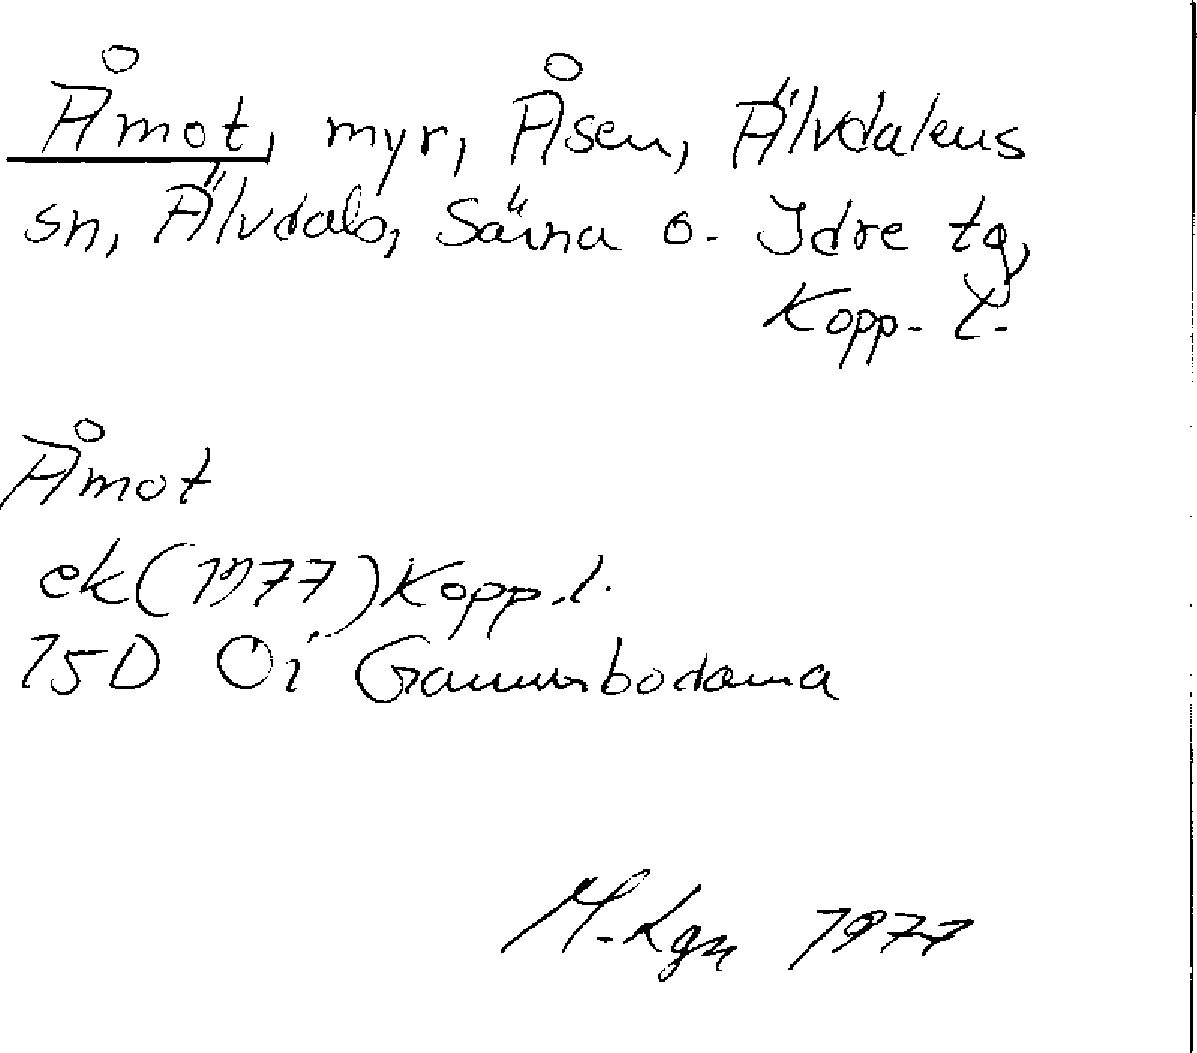 Åmot, myr, Åsen, Älvdalens
sn, Älvdals, Särna o. Idre tg,
Kopp. l.
Åmot
ek (1977) Kopp. l.
15D Öi Gammbodarna
M. Lgn 1977